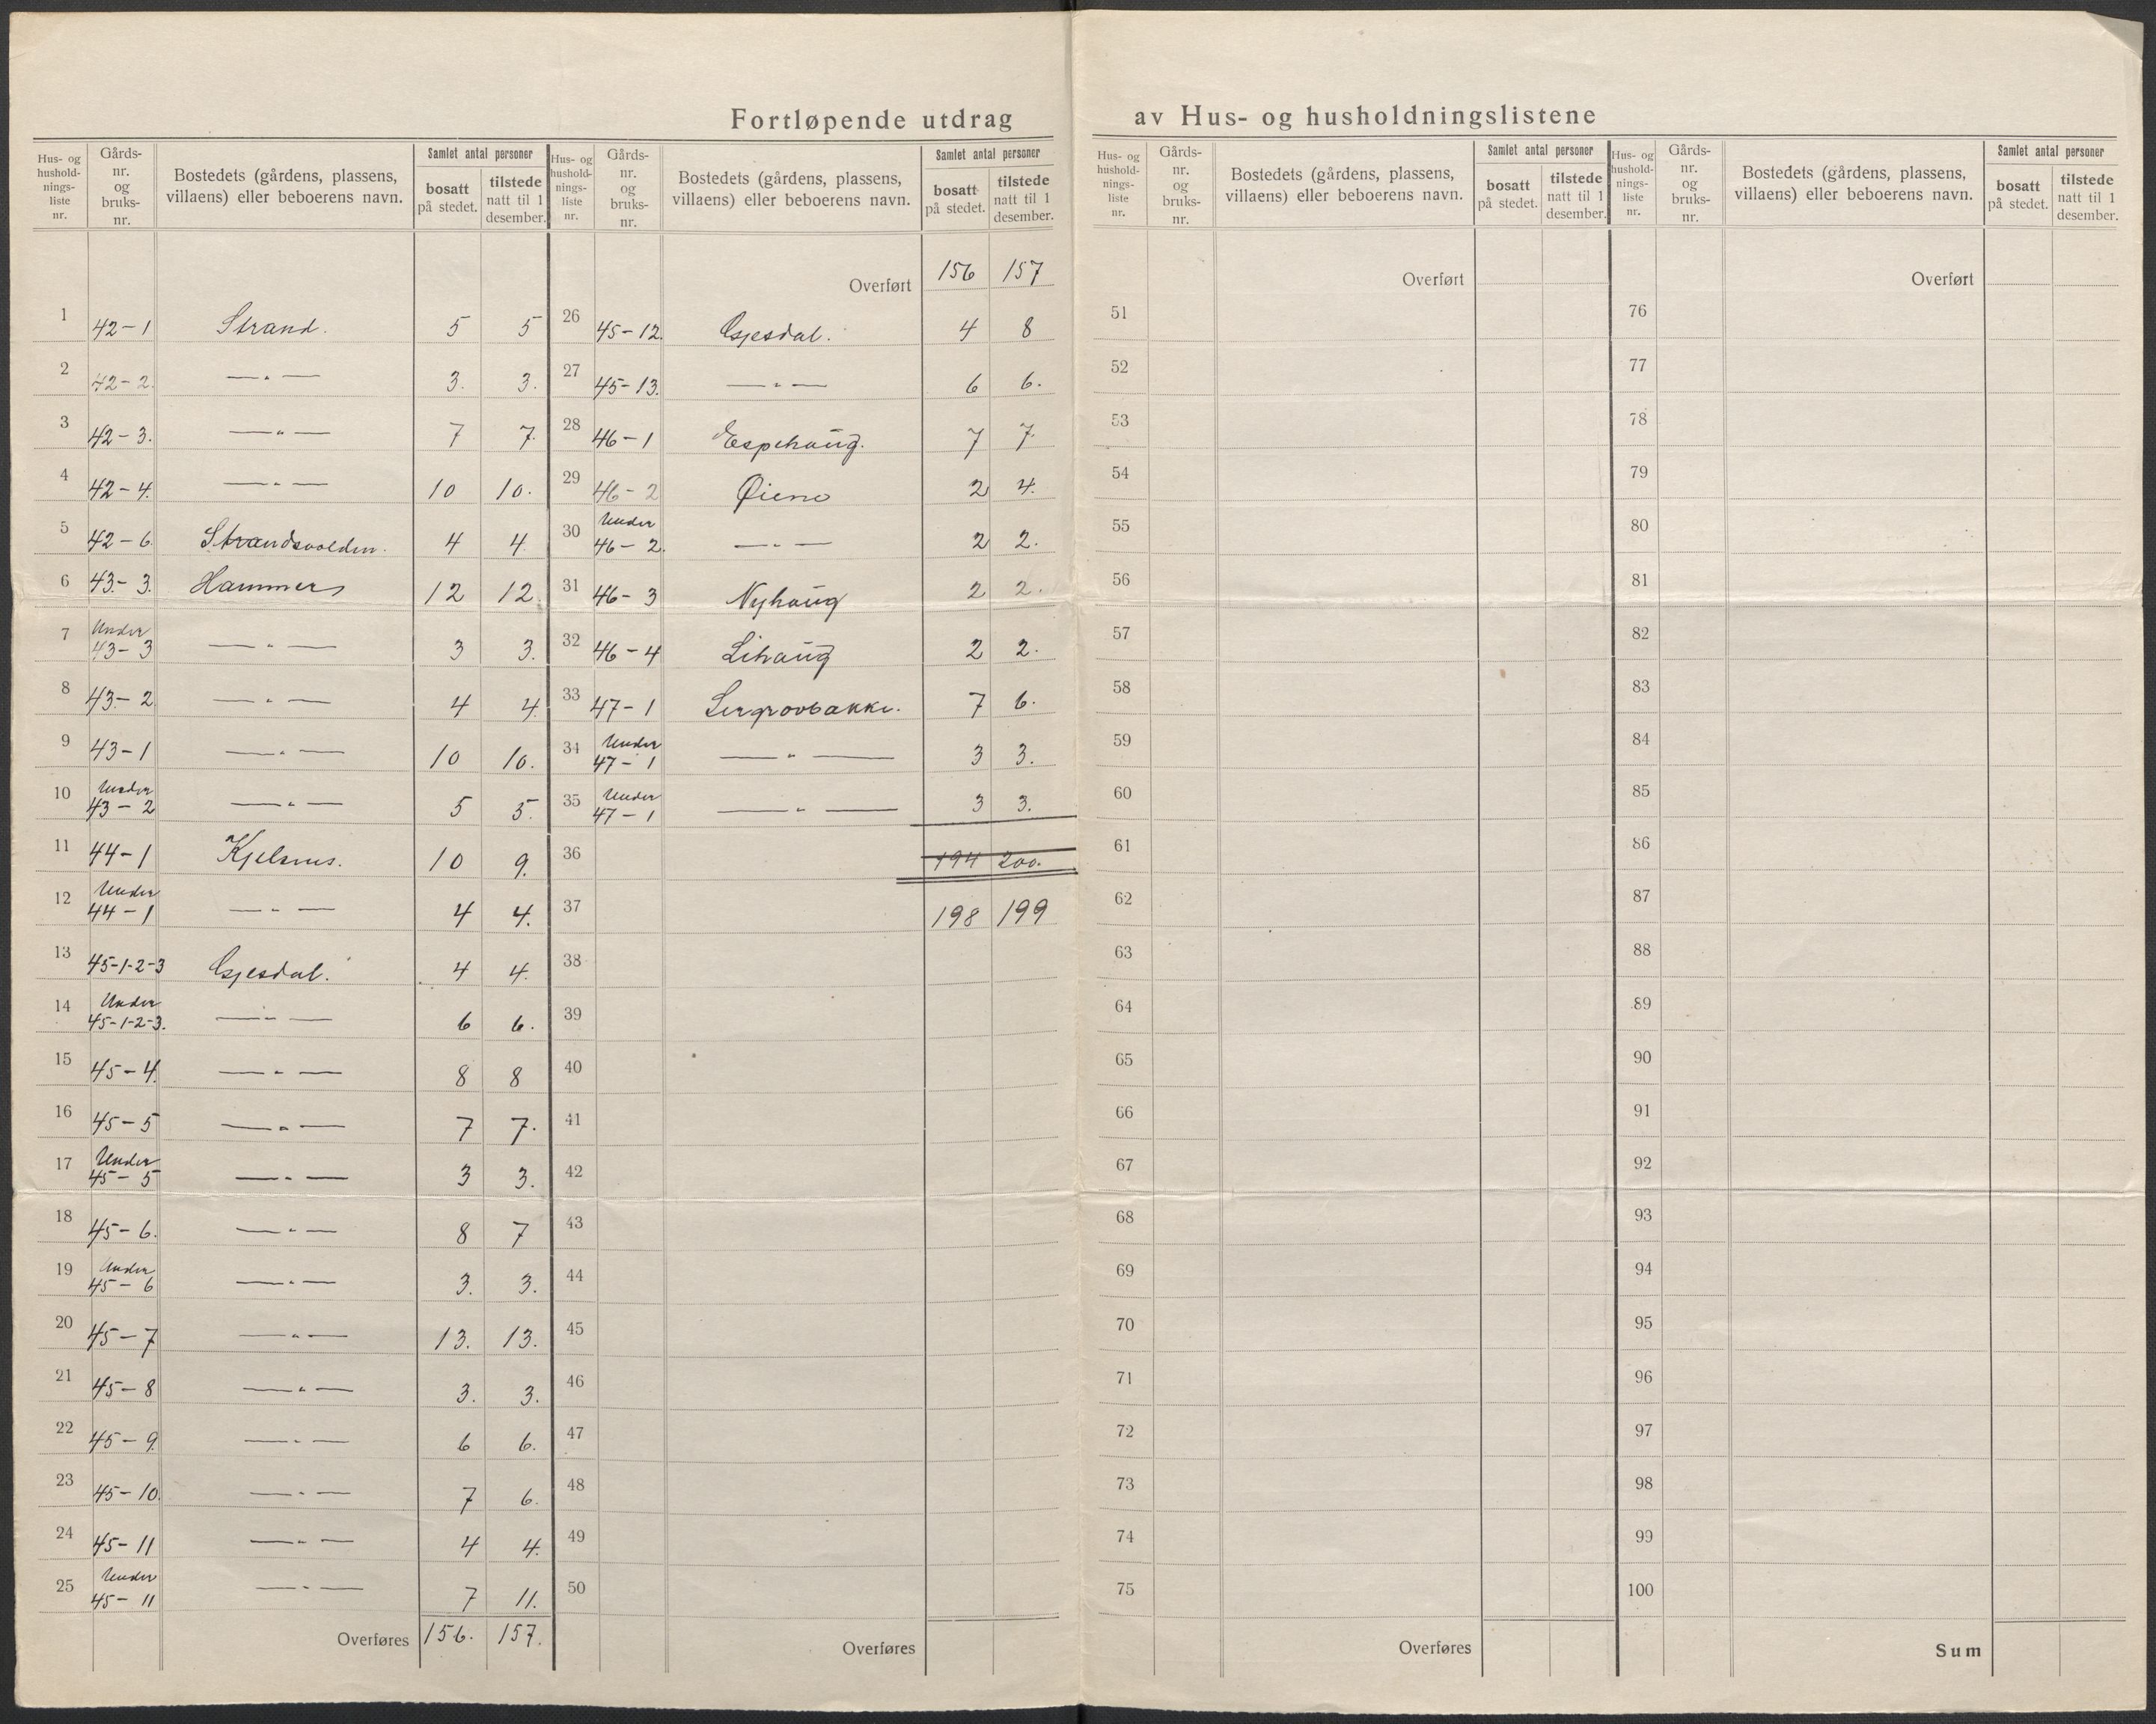 Fortløpende utdrag av Hus- og husholdningslistene
Hus- og hushold- nings- liste nr. | Gårds- nr. og bruks- nr. | Bostedets (gårdens, plassens, villaens) eller beboerens navn. | Samlet antal personer | bosatt på stedet. | tilstede natt til 1 desember.
1 42-1 Strand. 5 5
2 42-2. —„— 3. 3.
3 42-3. —„— 7 7.
4 42-4. —„— 10 10.
5 42-6. Strandsvolden. 4 4
6 43-3. Hammer 12 12
7 Under 43-3 —„— 3 3.
8 43-2 —„— 4 4
9 43-1 —„— 10 10.
10 Under 43-2 —„— 5 5.
11 44-1 10 9.
12 Under 44-1 —„— 4 4.
13 45-1-2-3 Gjesdal. 4 4.
14 Under 45-1-2-3. —„— 6 6.
15 45-4. —„— 8 8
16 45-5 —„— 7 7.
17 Under 45-5 —„— 3 3.
18 45-6. —„— 8 7
19 Under 45-6 —„— 3. 3.
20 45-7 —„— 13. 13.
21 45-8 —„— 3. 3.
22 45-9. —„— 6 6.
23 45-10. —„— 7 6.
24 45-11 —„— 4 4.
25 Under 45-11 —„— 7 11.
Overføres 156. 157.
Hus- og hushold- nings- liste nr. | Gårds- nr. og bruks- nr. | Bostedets (gårdens, plassens, villaens) eller beboerens navn. | Samlet antal personer | bosatt på stedet. | tilstede natt til 1 desember.
Overført 156 157
26 45-12. Gjesdal. 4 8
27 45-13. —„— 6 6.
28 46-1 Espehaug. 7 7.
29 46-2 Øiene 2 4.
30 Under 46-2. —„— 2 2.
31 46-3 Nyhaug 2 2.
32 46-4 Lihaug 2 2.
33 47-1 7 6.
34 Under 47-1 —„— 3 3.
35 Under 47-1 —„— 3 3.
36 194 200.
37 198 199
38
39
40
41
42
43
44
45
46
47
48
49
50
Overføres
Hus- og hushold- nings- liste nr. | Gårds- nr. og bruks- nr. | Bostedets (gårdens, plassens, villaens) eller beboerens navn. | Samlet antal personer | bosatt på stedet. | tilstede natt til 1 desember.
Overført
51
52
53
54
55
56
57
58
59
60
61
62
63
64
65
66
67
68
69
70
71
72
73
74
75
Overføres
Hus- og hushold- nings- liste nr. | Gårds- nr. og bruks- nr. | Bostedets (gårdens, plassens, villaens) eller beboerens navn. | Samlet antal personer | bosatt på stedet. | tilstede natt til 1 desember.
Overført
76
77
78
79
80
81
82
83
84
85
86
87
88
89
90
91
92
93
94
95
96
97
98
99
100
Sum